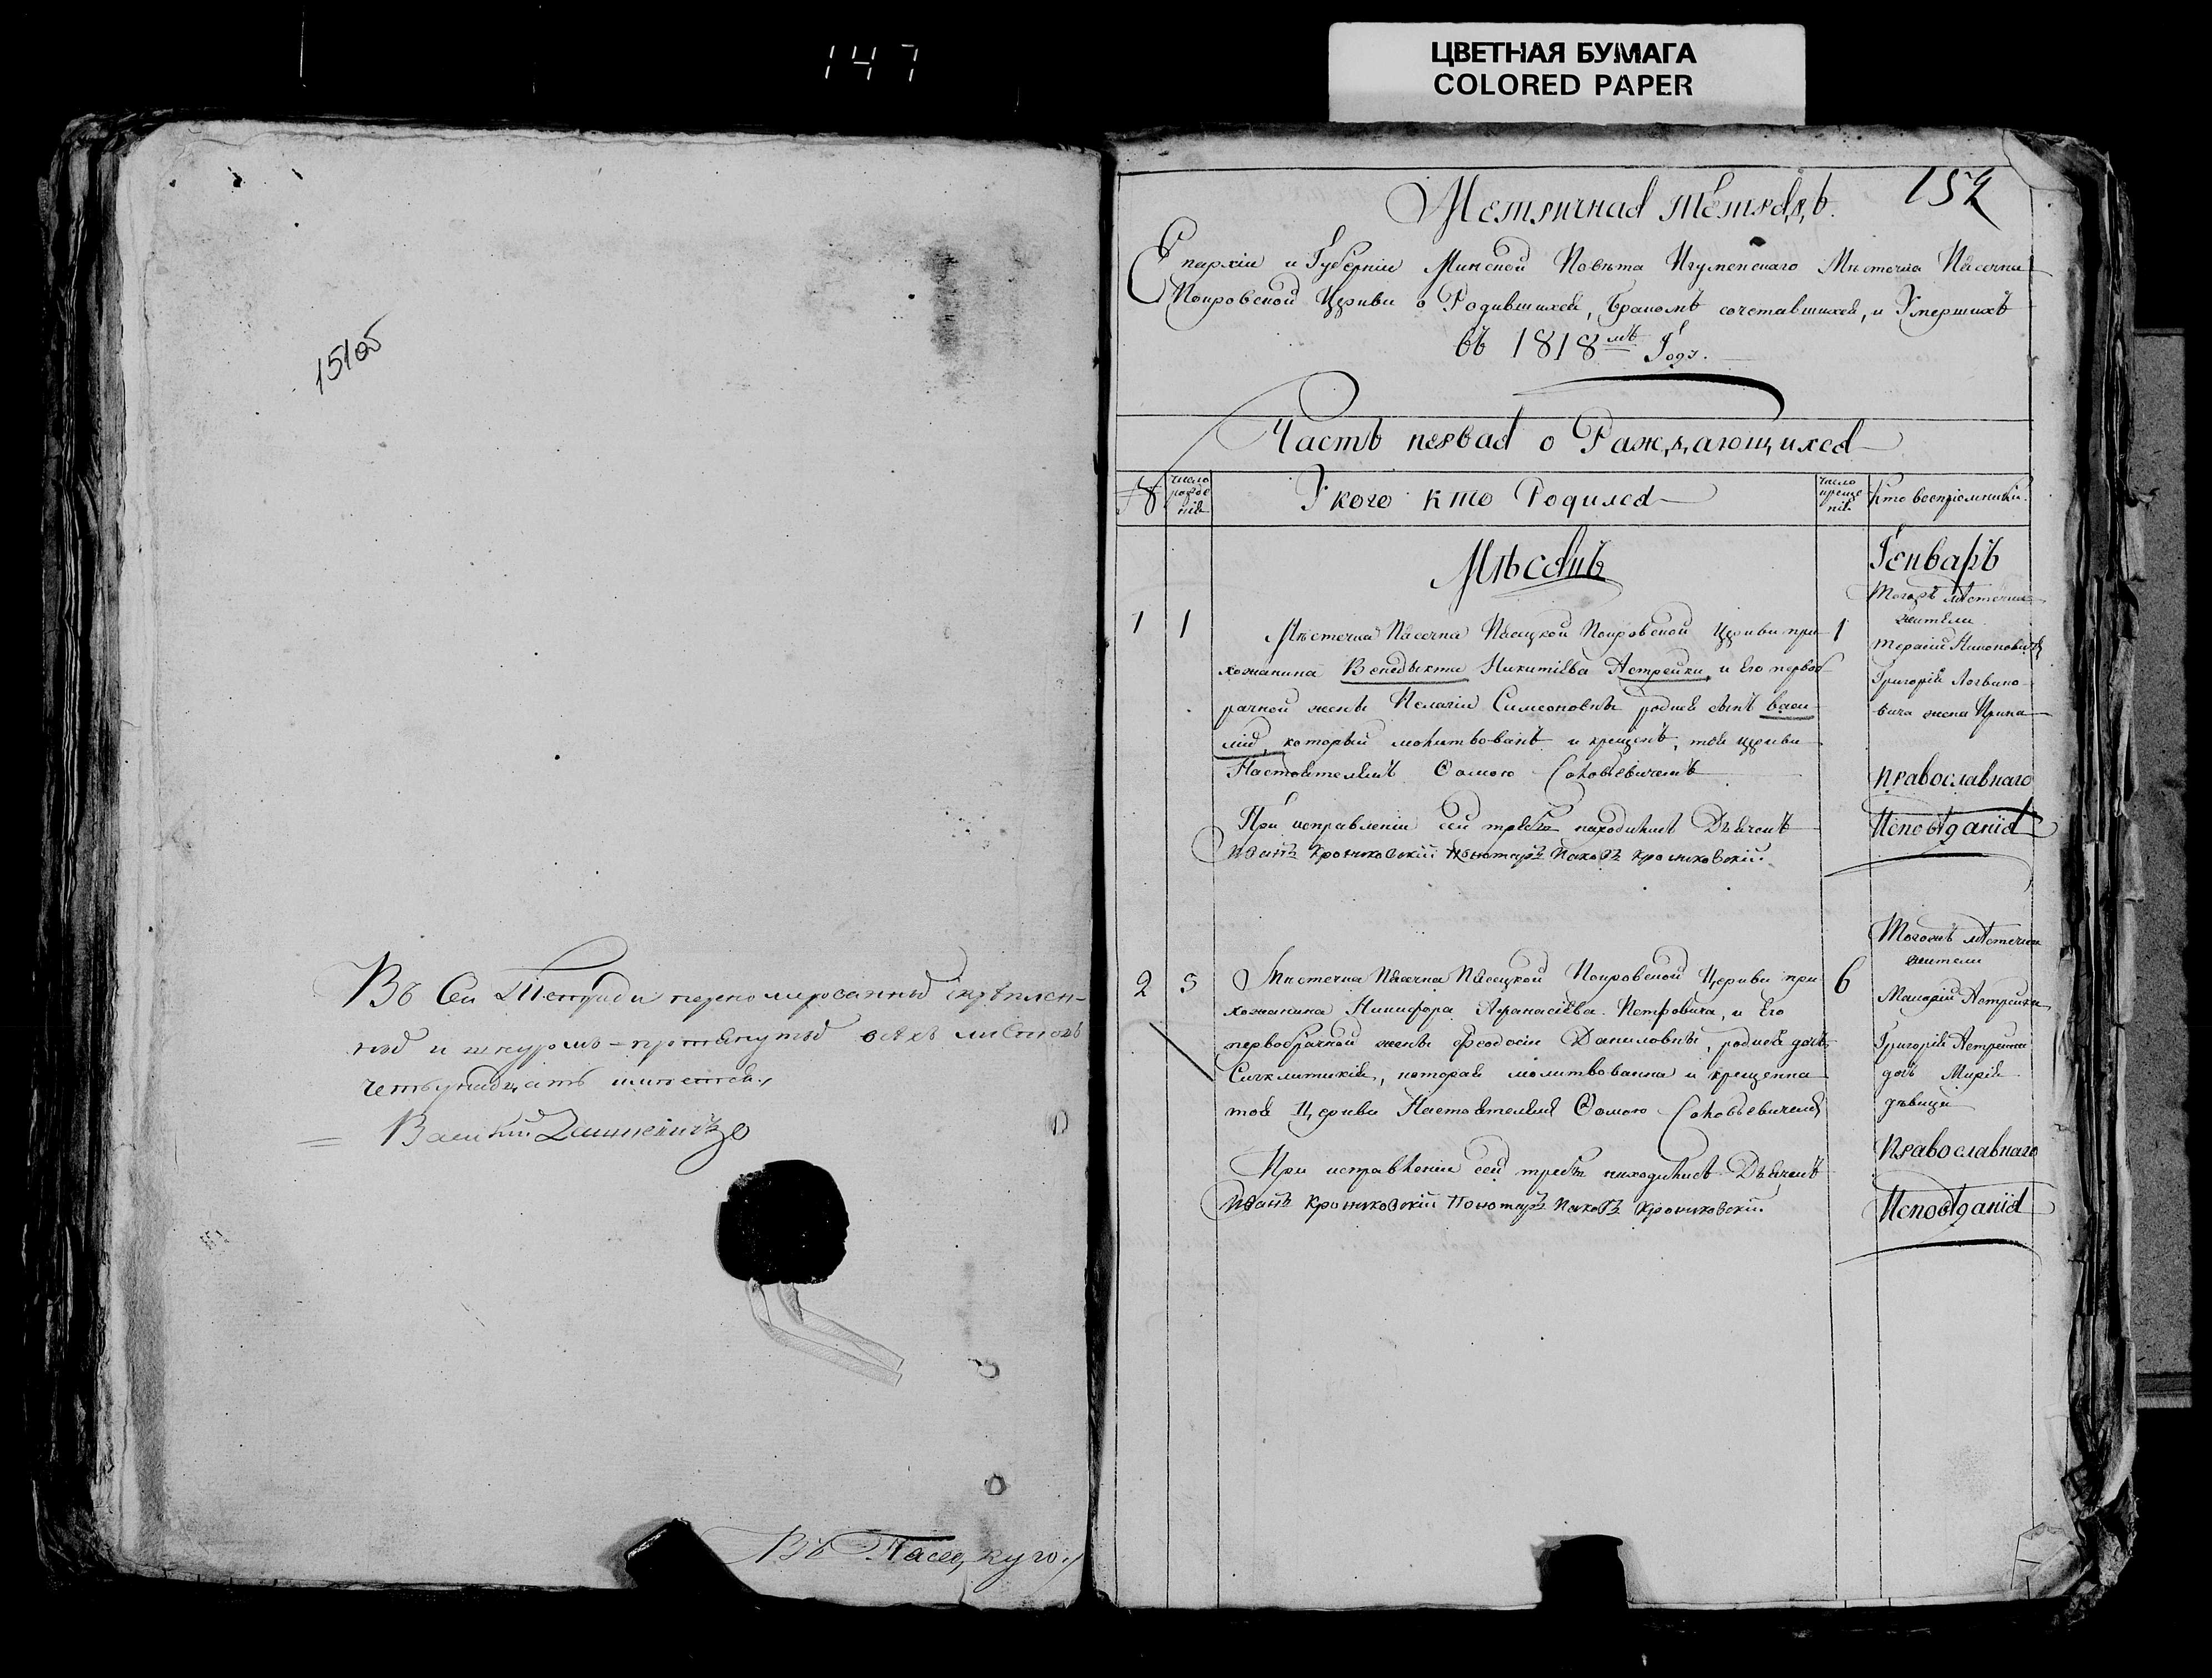 147
ЦВЕТНАЯ БУМАГА
COLORED PAPER
151об
Въ Сей Тетради перенумерованныя скрѣплен-
ныя и шнуромъ протянутыя всѣхъ листовъ
четырнадцать
Василий
Въ Пасецкую
152
Метричная тетрадь.
Епархіи и Губерніи Минской Повѣта Игуменскаго Мѣстечка Пасечна
Покровской Церкви о Родившихся, бракомъ сочетавшихся, и Умершихъ
въ 1818мъ Году.
Часть первая о Раждающихся
№
число рожденія
У кого кто Родился
число крещенія
Кто воспріемники.
Мѣсяцъ
Генварь
1 1
Мѣстечка Пасечна Пасецкой Покровской Церкви при-
хожанина Венедыкта Никитіева Астрейки, и Его первоб-
рачной жены Пелагіи Симеоновны родися сынъ васи-
лій, который молитвованъ и крещенъ, тоя церкви
Настоятелемъ Ѳомою Соловьевичемъ
При исправленіи сей требы находились Дьячокъ
Иванъ Крониковскій Пономарь Яковъ Крониковскій.
1
Тогожъ мѣстечка
жители
Григорія Логвино-
вича жена Ирина
православнаго
Исповѣданія
2 5
Мѣстечка Пасечна Пасецкой Покровской Церкви при-
хожанина Никифора Афанасіева Петровича, и Его
первобрачной жены Феодосіи Даниловны, родися дочь
Сигклитикія, которая молитвованна и крещенна
тоя Церкви Настоятелемъ Ѳомою Соловьевичемъ
При исправленіи сей требы находились Дьячокъ
Иванъ Крониковскій Пономарь Яковъ Крониковскій.
6
Тогожъ мѣстечка
жители
Макарій Астрейка
Григорія Астрейки
дочь Марія
дѣвица
Православнаго
Исповѣданія